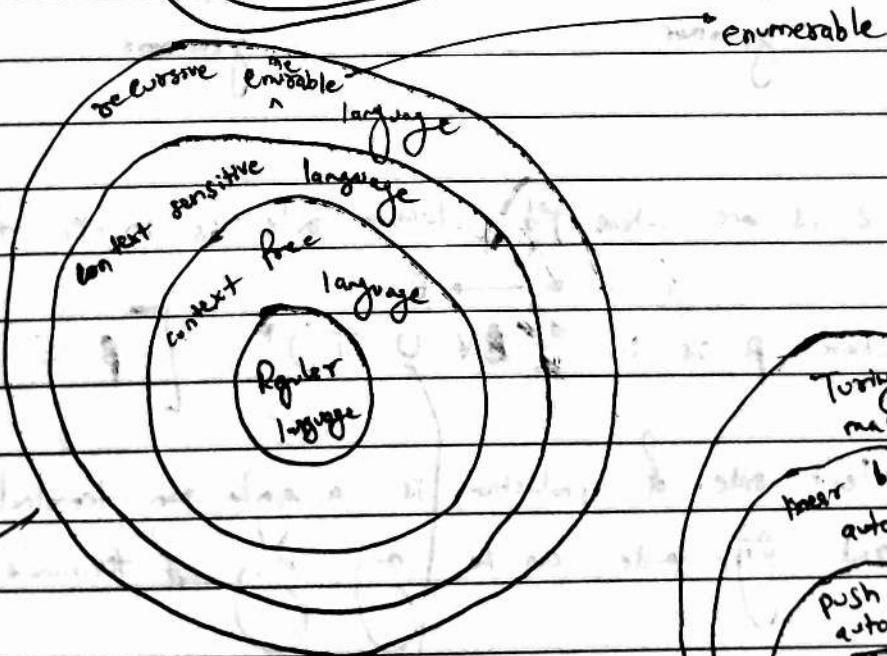 enumerable
recursive enurable
ne
^
language
context sensitive language
context free
language
Reguler
language
Turin
ma
linear b
auto
push
auto